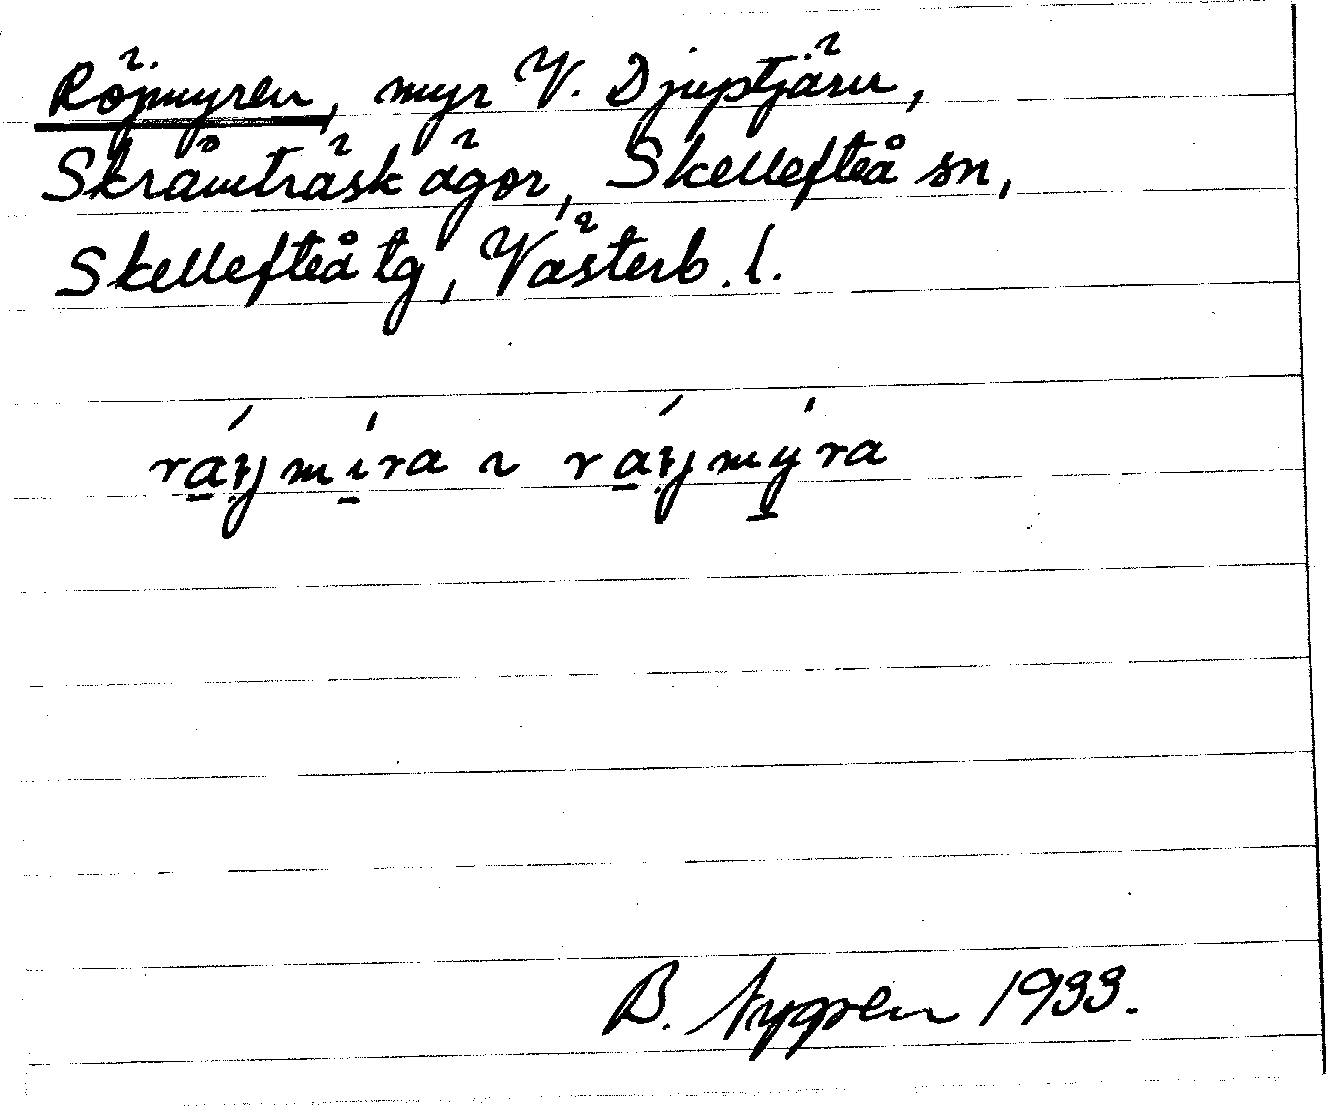 Röjmyren, myr V. Djuptjärn,
Skråmträsk ägor, Skellefteå sn,
Skellefteå tg, Västerb. l.
ráy̨mi̱ra ~ ráy̨my̱ra
B. Nygren 1933.